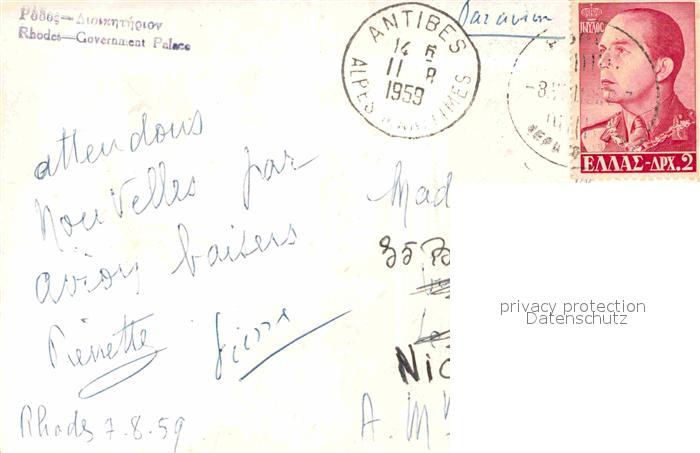 Ρόδος—Διοικητήριον
Rhodes—Government Palace
Par avion
ANTIBES
14 H
11 8
1959
ALPES MARITIMES
-8.
ΠΑΥΛΟΣ
ΕΛΛΑΣ-ΔΡΧ.2
attendons
Nouvelles par
avion baisers
Pierrette Pierre
Rhodes 7.8.59
Mad
35
Nic
A. M
privacy protection
Datenschutz